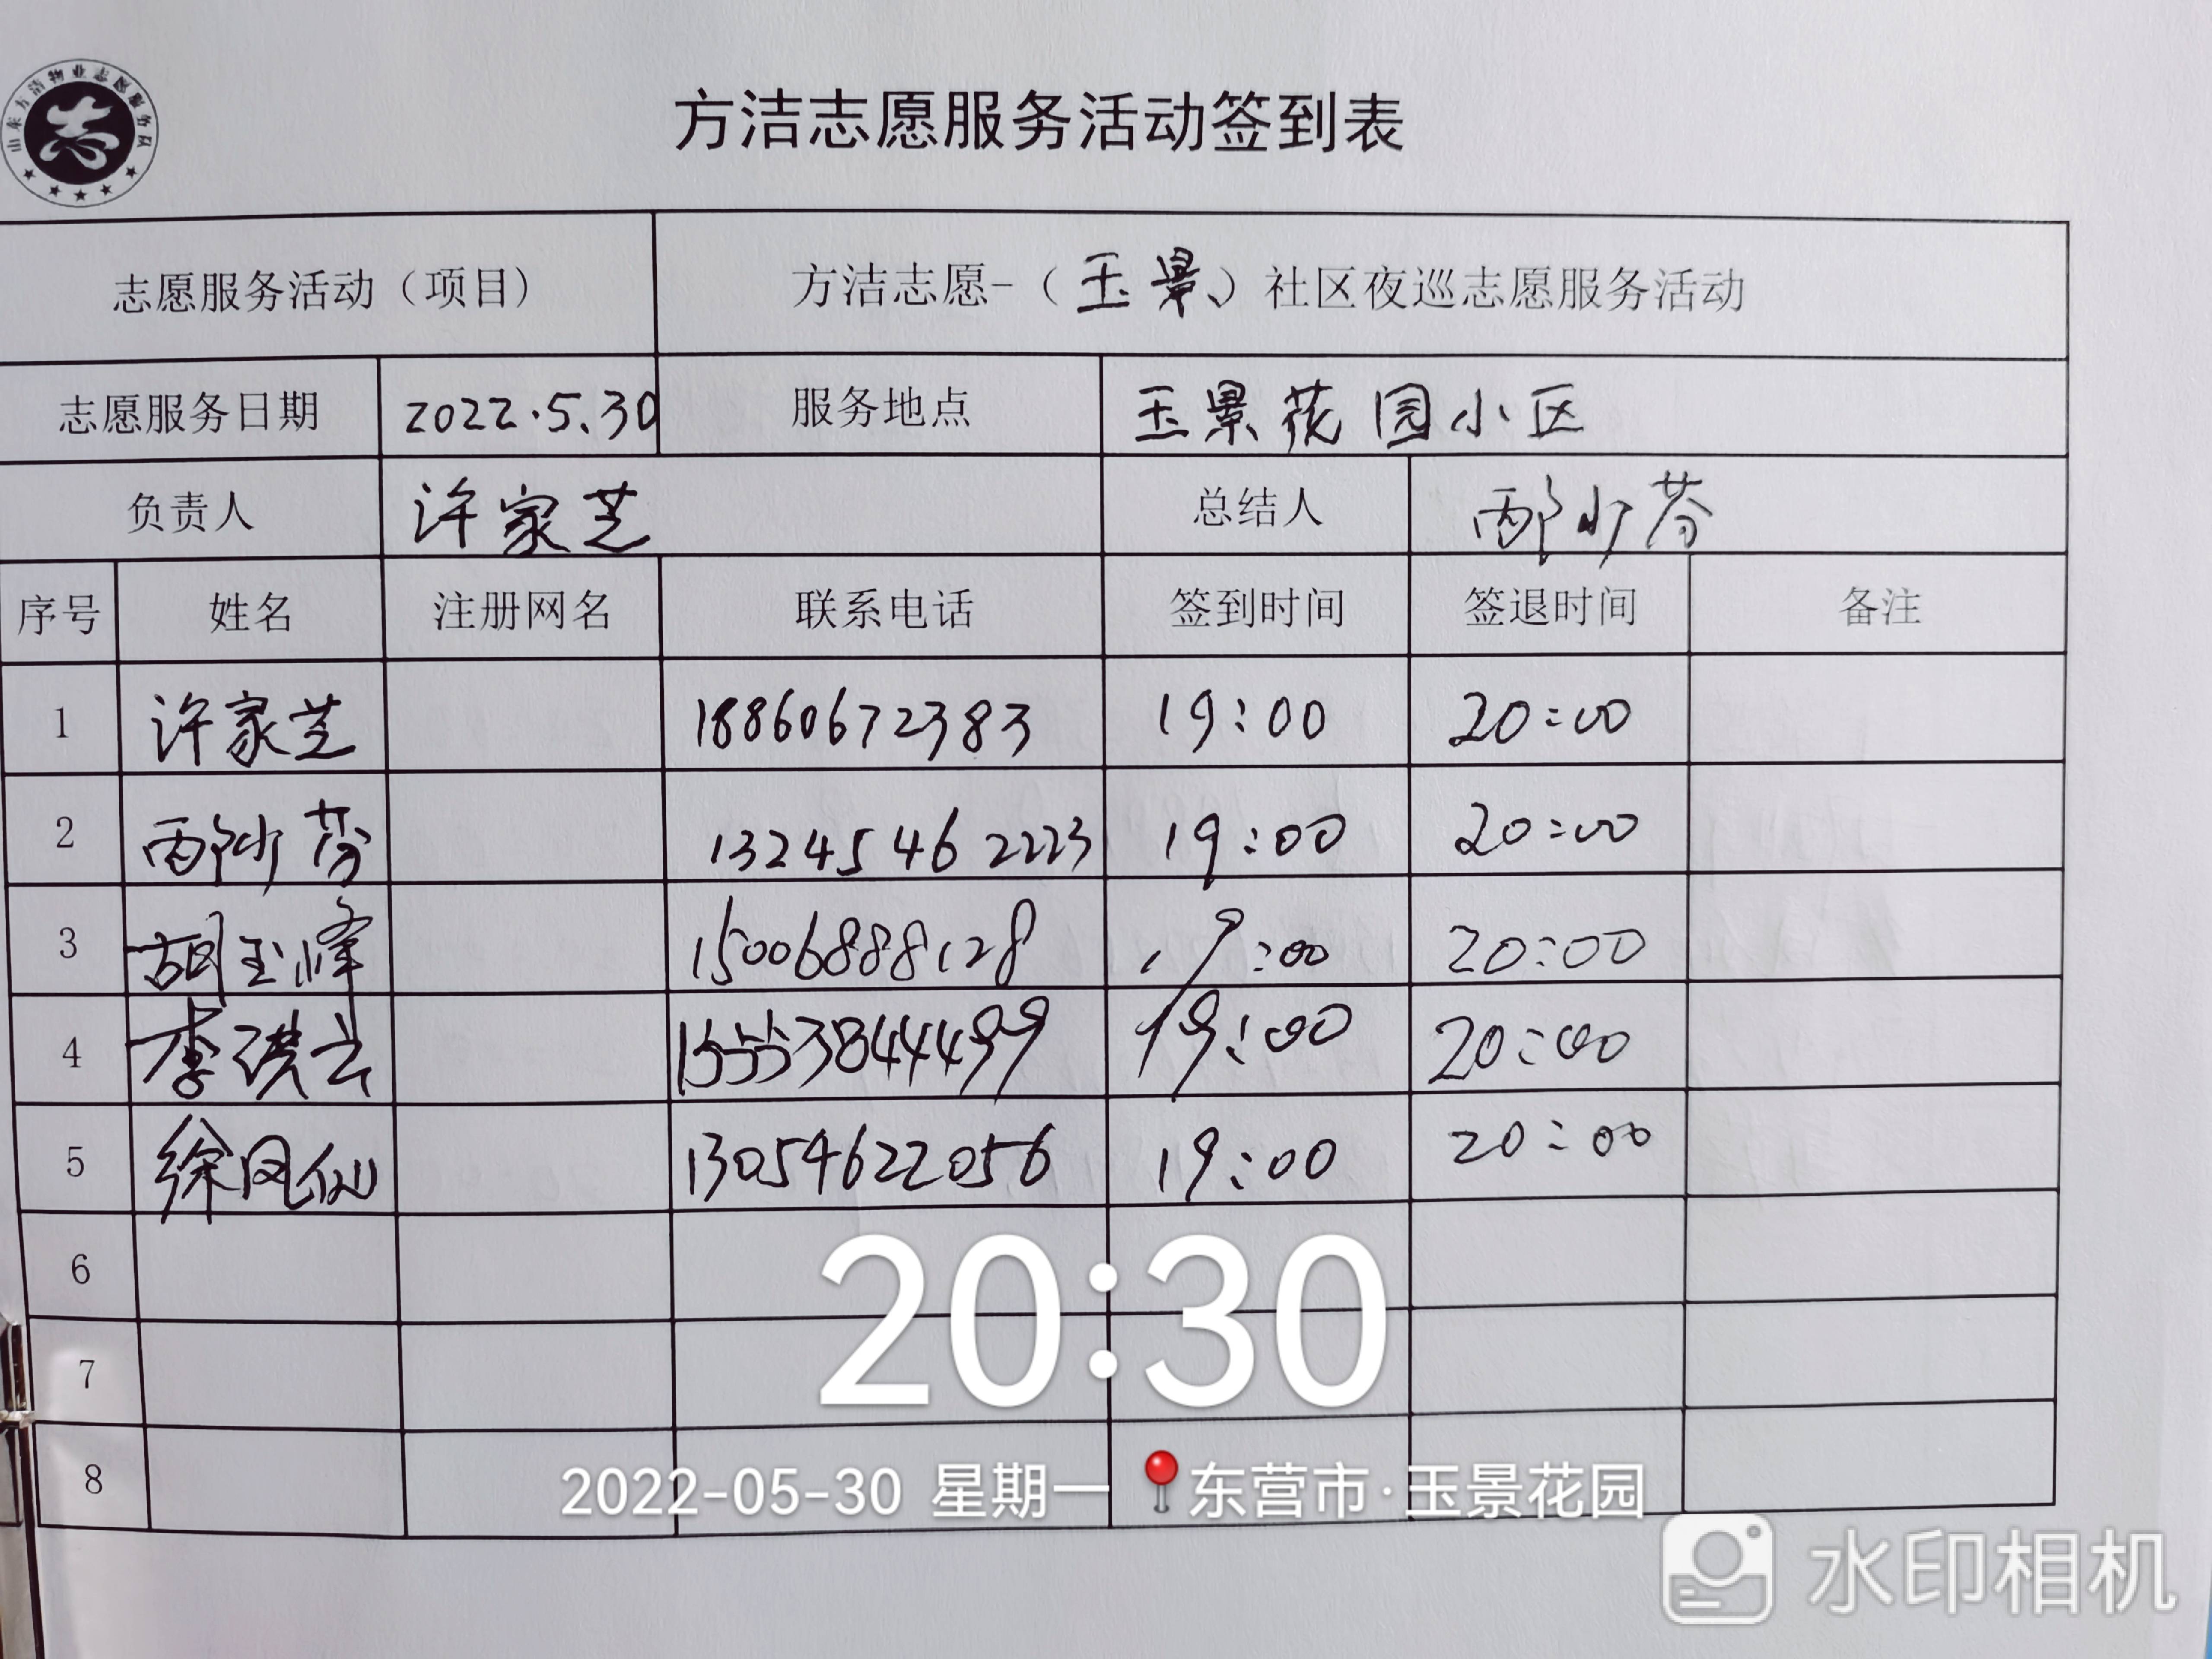 山东方洁物业志愿服务队
志
方洁志愿服务活动签到表
志愿服务活动（项目） 方洁志愿-（玉景）社区夜巡志愿服务活动
志愿服务日期 2022.5.30 服务地点 玉景花园小区
负责人 许家芝 总结人 邴少芬
序号 姓名 注册网名 联系电话 签到时间 签退时间 备注
1 许家芝 18860672383 19:00 20:00
2 邴少芬 13245462223 19:00 20:00
3 胡玉峰 15006888128 19:00 20:00
4 李洪云 19:00 20:00
5 徐凤仙 13054622056 19:00 20:00
6
7
8
20:30
2022-05-30 星期一 东营市·玉景花园
水印相机